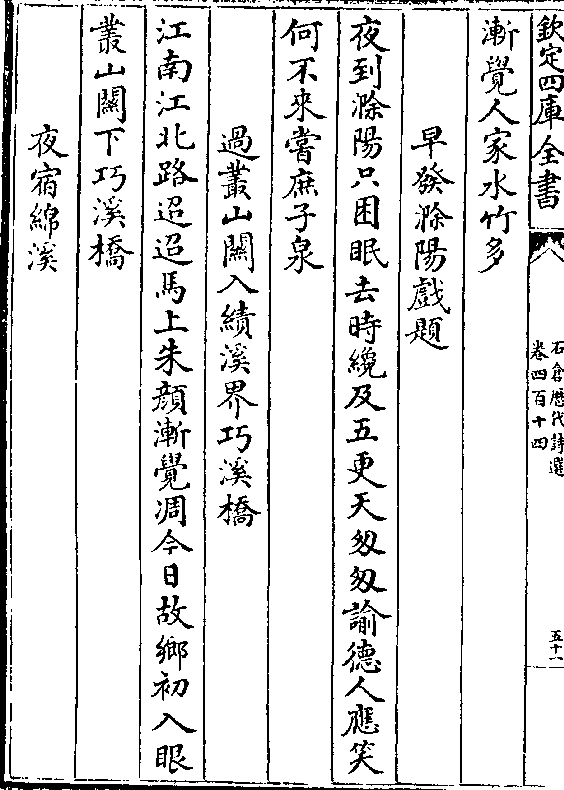 欽定四庫全書
石倉歴代詩選
卷四百十四
五十一
漸覺人家水竹多
早發滁陽戲題
夜到滁陽只困眠去時纔及五更天匆匆諭德人應笑
何不來嘗庶子泉
過叢山關入績溪界巧溪橋
江南江北路迢迢馬上朱顔漸覺凋今日故鄉初入眼
叢山關下巧溪橋
夜宿綿溪